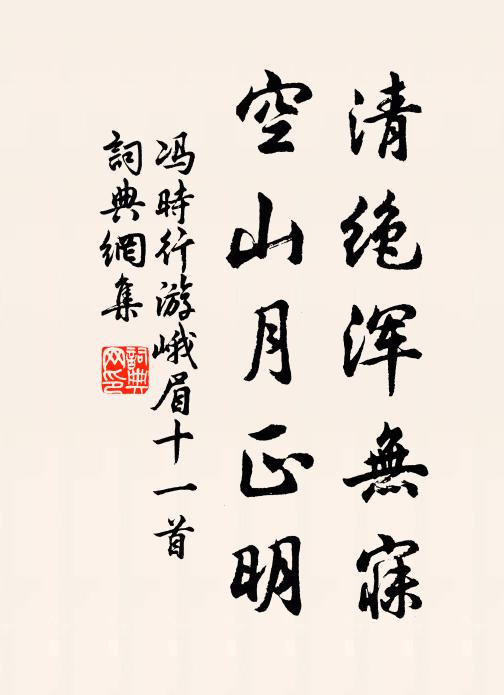 清绝浑無寐
空山月正明
冯時行游峨眉十一首
詞典網集
詞典
网印